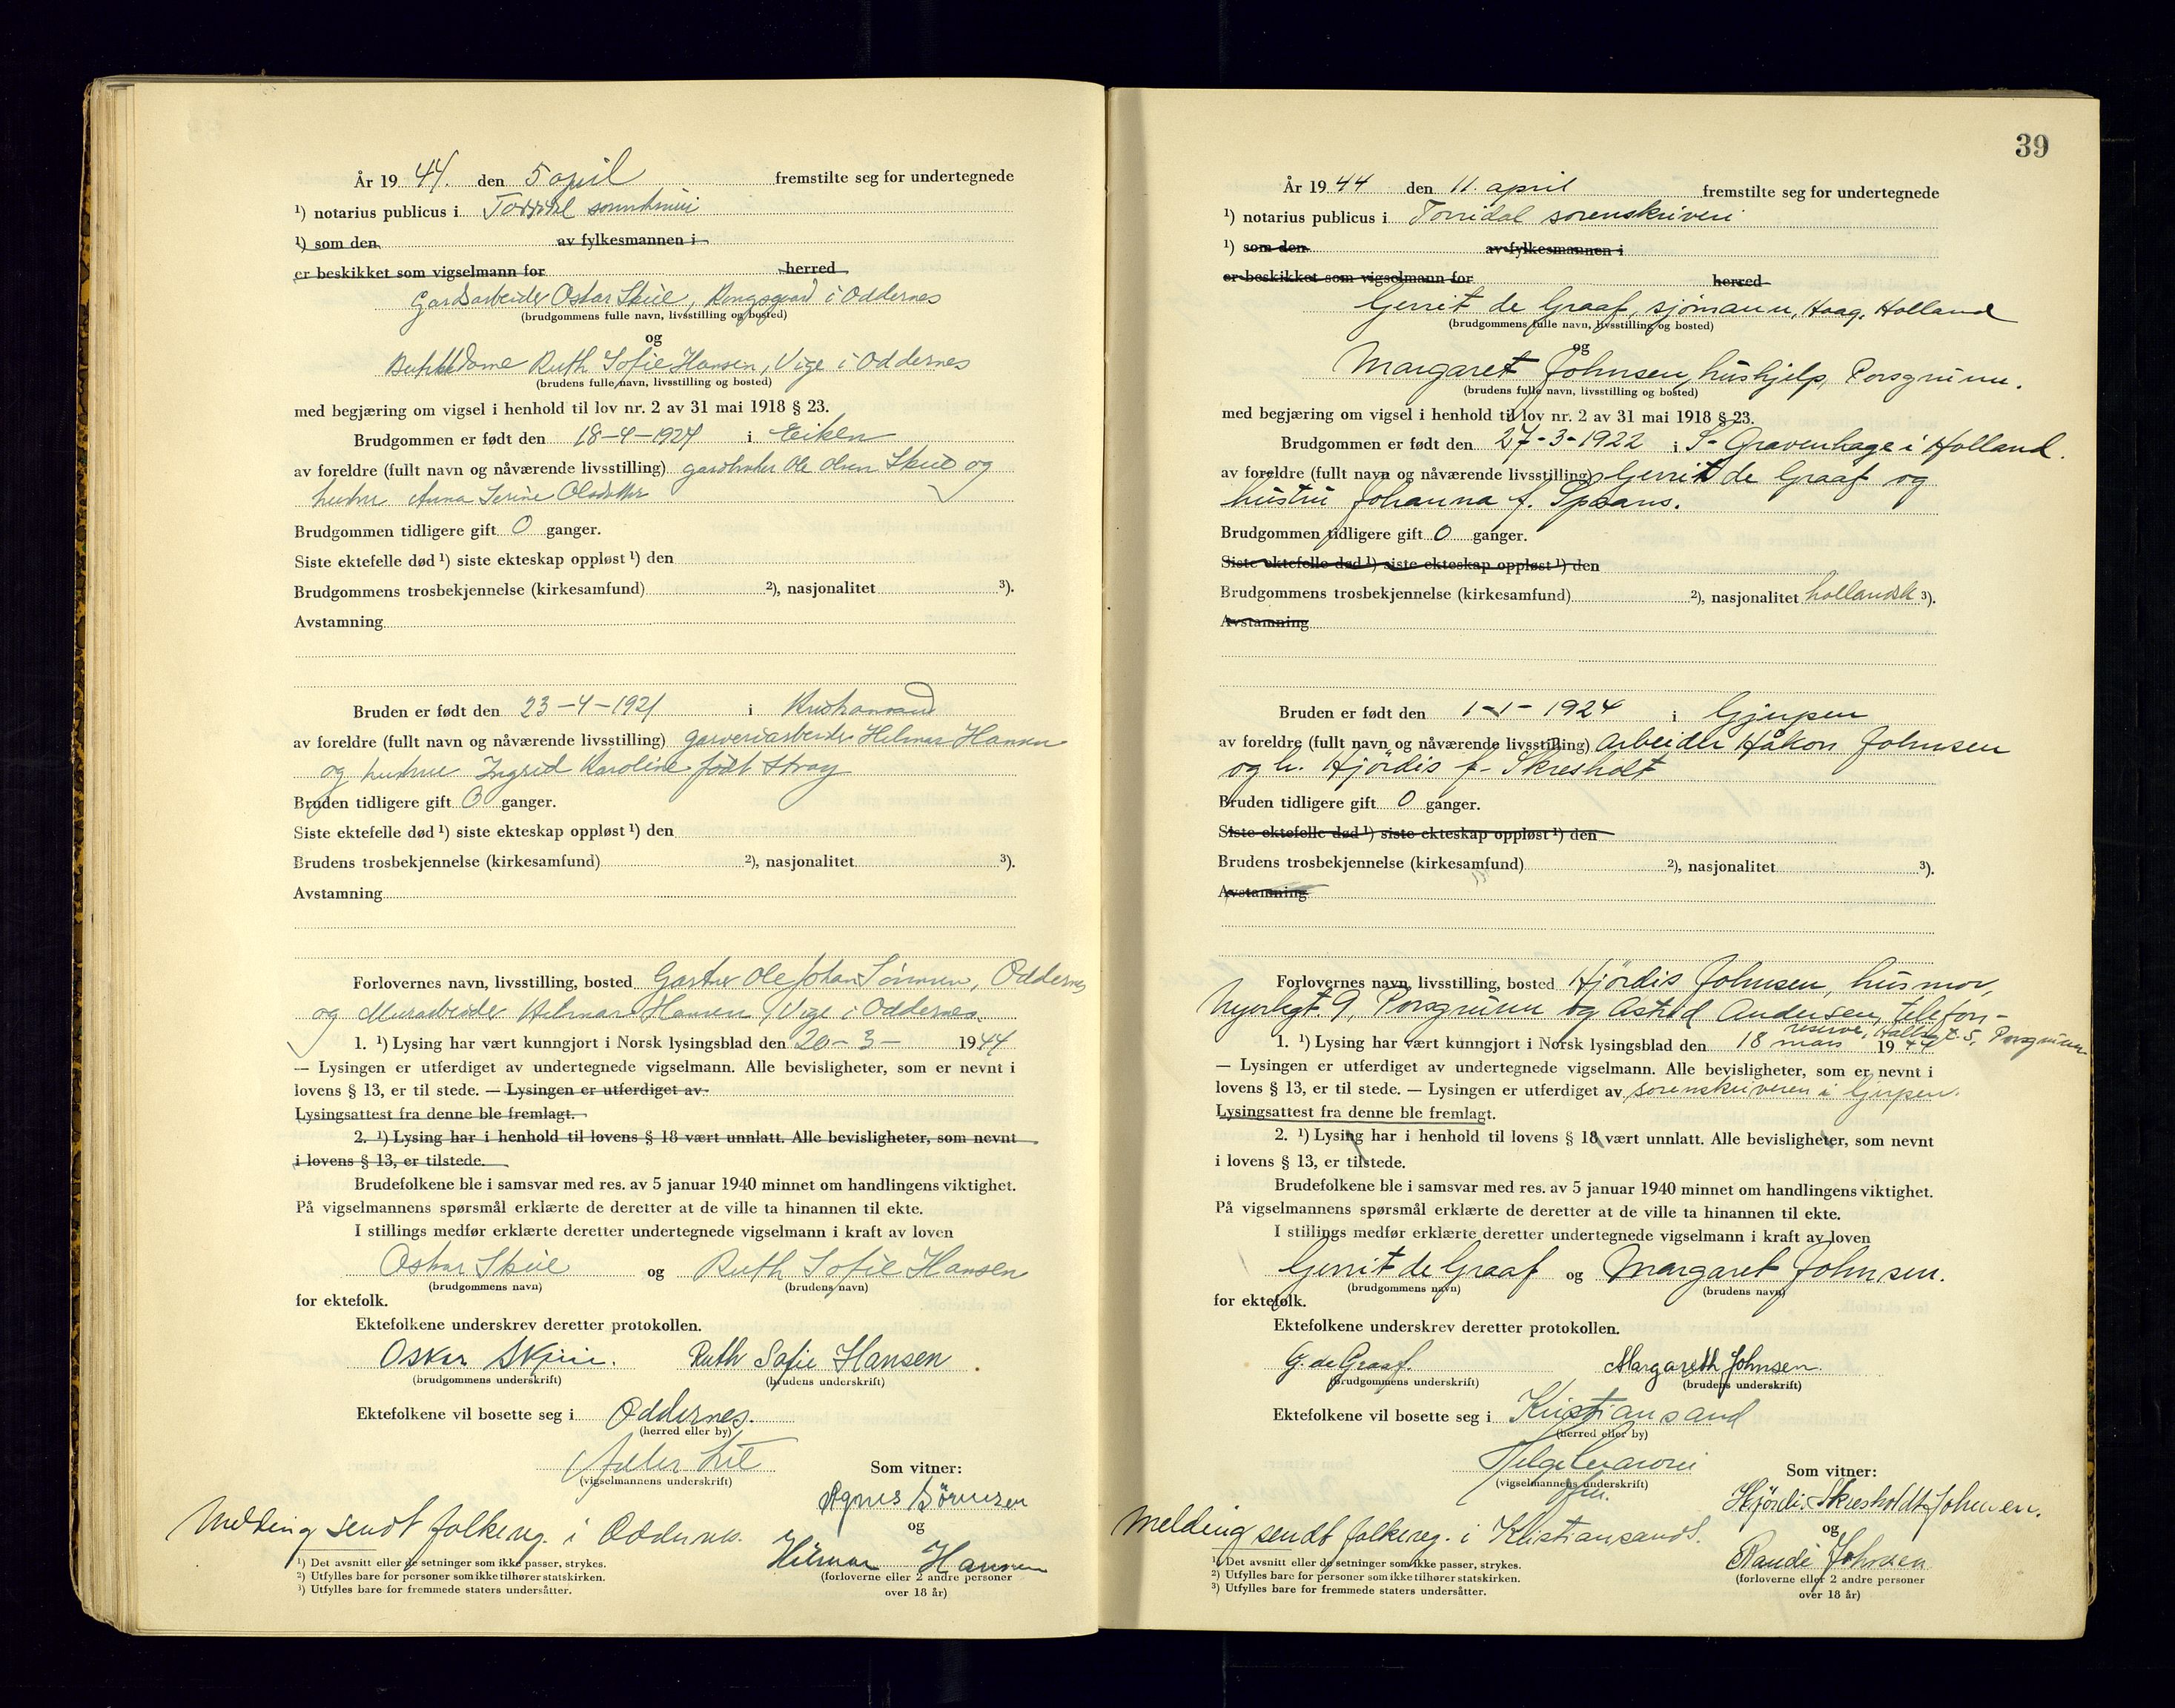 År 1944. den 5 april fremstilte seg for undertegnede
¹) notarius publicus i Torridal
¹) som den av fylkesmannen i
er beskikket som vigselmann for herred
Gardsarbeider Oskar Skeie, Kongsgård i Oddernes
(brudgommens fulle navn, livsstilling og bosted)
og
Butikkdame Ruth Sofie Hansen, Vige i Oddernes
(brudens fulle navn, livsstilling og bosted)
med begjæring om vigsel i henhold til lov nr. 2 av 31 mai 1918 § 23.
Brudgommen er født den 18-4-1924 i Eiken
av foreldre (fullt navn og nåværende livsstilling) gardbruker Ole Olsen Skeie og
hustru Anna Serine
Brudgommen tidligere gift 0 ganger.
Siste ektefelle død ¹) siste ekteskap oppløst ¹) den
Brudgommens trosbekjennelse (kirkesamfund) ²), nasjonalitet ³).
Avstamning
Bruden er født den 23-4-1921 i Kristiansand
av foreldre (fullt navn og nåværende livsstilling) garveriarbeider Hilmar Hansen
og hustru Ingrid Karoline født Stray
Bruden tidligere gift 0 ganger.
Siste ektefelle død ¹) siste ekteskap oppløst ¹) den
Brudens trosbekjennelse (kirkesamfund) ²), nasjonalitet ³).
Avstamning
Forlovernes navn, livsstilling, bosted Gartner Ole Johan Sørensen, Oddernes
og Murarbeider Hilmar Hansen, Vige i Oddernes.
1. ¹) Lysing har vært kunngjort i Norsk lysingsblad den 20-3- 1944
— Lysingen er utferdiget av undertegnede vigselmann. Alle bevisligheter, som er nevnt i
lovens § 13, er til stede. — Lysingen er utferdiget av
Lysingsattest fra denne ble fremlagt.
2. ¹) Lysing har i henhold til lovens § 18 vært unnlatt. Alle bevisligheter, som nevnt
i lovens § 13, er tilstede.
Brudefolkene ble i samsvar med res. av 5 januar 1940 minnet om handlingens viktighet.
På vigselmannens spørsmål erklærte de deretter at de ville ta hinannen til ekte.
I stillings medfør erklærte deretter undertegnede vigselmann i kraft av loven
Oskar Skeie og Ruth Sofie Hansen
(brudgommens navn) (brudens navn)
for ektefolk.
Ektefolkene underskrev deretter protokollen.
Oskar Skeie. Ruth Sofie Hansen
(brudgommens underskrift) (brudens underskrift)
Ektefolkene vil bosette seg i Oddernes.
(herred eller by)
(vigselmannens underskrift)
Som vitner:
Agnes Sörensen
og
Hilmar Hansen
(forloverne eller 2 andre personer
over 18 år)
Melding sendt folkereg. i Oddernes.
¹) Det avsnitt eller de setninger som ikke passer, strykes.
²) Utfylles bare for personer som ikke tilhører statskirken.
³) Utfylles bare for fremmede staters undersåtter.
39
År 1944 den 11. april fremstilte seg for undertegnede
¹) notarius publicus i Torridal sorenskriveri
¹) som den av fylkesmannen i
er beskikket som vigselmann for herred
Gerrit de Graaf, sjømann, Haag, Holland
(brudgommens fulle navn, livsstilling og bosted)
og
Margaret Johnsen, hushjelp, Porsgrunn.
(brudens fulle navn, livsstilling og bosted)
med begjæring om vigsel i henhold til lov nr. 2 av 31 mai 1918 § 23.
Brudgommen er født den 27-3-1922 i S-Gravenhage i Holland.
av foreldre (fullt navn og nåværende livsstilling) Gerrit de Graaf og
hustru Johanna f. Spaans.
Brudgommen tidligere gift 0 ganger.
Siste ektefelle død ¹) siste ekteskap oppløst ¹) den
Brudgommens trosbekjennelse (kirkesamfund) ²), nasjonalitet hollandsk ³).
Avstamning
Bruden er født den 1-1-1924 i Gjerpen
av foreldre (fullt navn og nåværende livsstilling) Arbeider Håkon Johnsen
og h. Hjördis f. Skresholt
Bruden tidligere gift 0 ganger.
Siste ektefelle død ¹) siste ekteskap oppløst ¹) den
Brudens trosbekjennelse (kirkesamfund) ²), nasjonalitet ³).
Avstamning
Forlovernes navn, livsstilling, bosted Hjördis Johnsen, husmor,
9, Porsgrunn og Astrid Andersen, telefon-
reserve, 5, Porsgrunn
1. ¹) Lysing har vært kunngjort i Norsk lysingsblad den 18 mars 1944
— Lysingen er utferdiget av undertegnede vigselmann. Alle bevisligheter, som er nevnt i
lovens § 13, er til stede. — Lysingen er utferdiget av sorenskriveren i Gjerpen.
Lysingsattest fra denne ble fremlagt.
2. ¹) Lysing har i henhold til lovens § 18 vært unnlatt. Alle bevisligheter, som nevnt
i lovens § 13, er tilstede.
Brudefolkene ble i samsvar med res. av 5 januar 1940 minnet om handlingens viktighet.
På vigselmannens spørsmål erklærte de deretter at de ville ta hinannen til ekte.
I stillings medfør erklærte deretter undertegnede vigselmann i kraft av loven
Gerrit de Graaf og Margaret Johnsen.
(brudgommens navn) (brudens navn)
for ektefolk.
Ektefolkene underskrev deretter protokollen.
G. de Graaf. Margareth Johnsen.
(brudgommens underskrift) (brudens underskrift)
Ektefolkene vil bosette seg i Kristiansand
(herred eller by)
(vigselmannens underskrift)
Som vitner:
Hjördis Skresholdt Johnsen.
og
Randi Johnsen
(forloverne eller 2 andre personer
over 18 år)
Melding sendt folkereg. i Kristiansand S.
¹) Det avsnitt eller de setninger som ikke passer, strykes.
²) Utfylles bare for personer som ikke tilhører statskirken.
³) Utfylles bare for fremmede staters undersåtter.